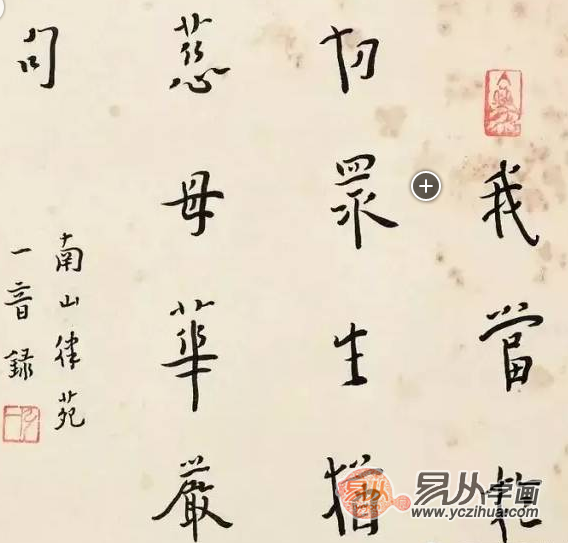 我當於
切眾生猶
慈母華嚴
句
南山律苑
一音錄
易从字画
www.yczihua.com